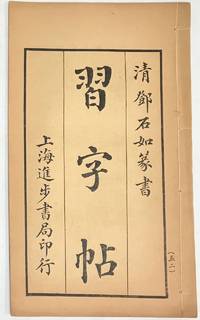 清鄧石如篆書
習字帖
上海進步書局印行
(五二)